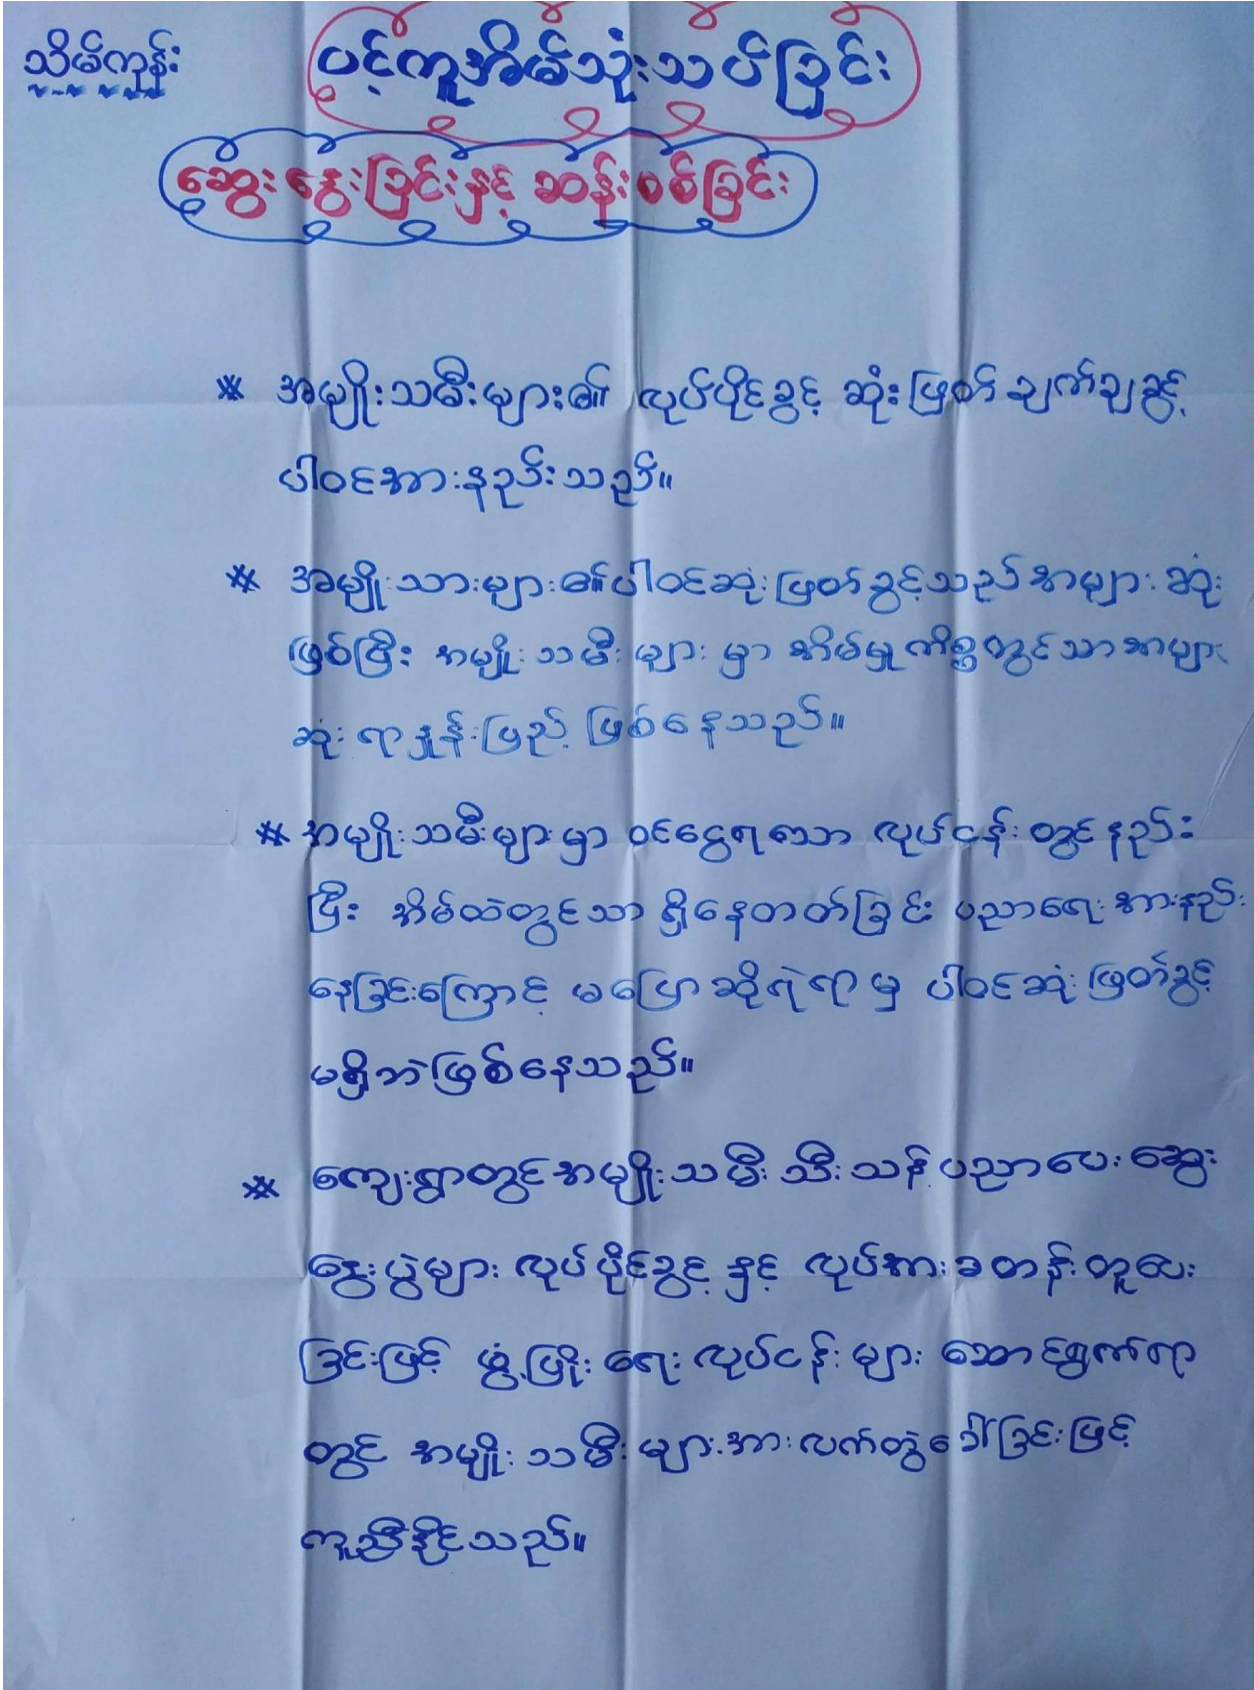 သိမ်ကုန်း
ပင့်ကူအိမ်သုံးသပ်ခြင်း
ဆွေးနွေးခြင်းနှင့် ဆန်းစစ်ခြင်း
* အမျိုးသမီးများ၏ လုပ်ပိုင်ခွင့် ဆုံးဖြတ်ချက်ချခွင့်
ပါဝင်အားနည်းသည်။
* အမျိုးသားများ၏ပါဝင်ဆုံးဖြတ်ခွင့်သည်အများဆုံး
ဖြစ်ပြီး အမျိုးသမီးများမှာ အိမ်မှုကိစ္စတွင်သာအများ
ဆုံးရာနှုန်းပြည့် ဖြစ်နေသည်။
* အမျိုးသမီးများမှာ ဝင်ငွေရသော လုပ်ငန်းတွင်နည်း
ပြီး အိမ်ထဲတွင်သာ ရှိနေတတ်ခြင်း ပညာရေးအားနည်း
နေခြင်းကြောင့် မပြောဆိုရဲရာမှ ပါဝင်ဆုံးဖြတ်ခွင့်
မရှိဘဲဖြစ်နေသည်။
* ကျေးရွာတွင်အမျိုးသမီးသီးသန့်ပညာပေးဆွေး
နွေးပွဲများ လုပ်ပိုင်ခွင့်နှင့် လုပ်အားခတန်းတူပေး
ခြင်းဖြင့် ဖွံ့ဖြိုးရေးလုပ်ငန်းများ ဆောင်ရွက်ရာ
တွင် အမျိုးသမီးများအားလက်တွဲခေါ်ခြင်းဖြင့်
ကူညီနိုင်သည်။